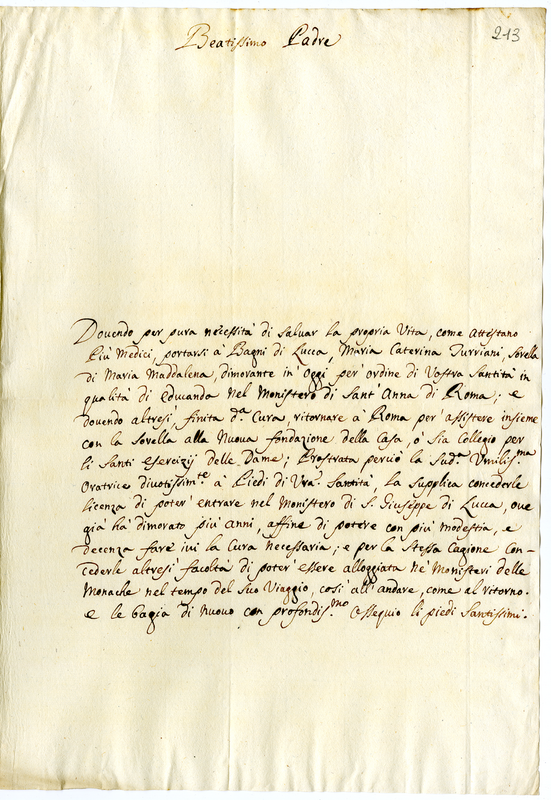 213
Beatissimo Padre
Dovendo per pura necessità di salvar la propria Vita, come attestano
più Medici, portarsi a' Bagni di Lucca, Maria Caterina Turriani, Sorella
di Maria Maddalena, dimorante in oggi per ordine di Vostra Santità in
qualità di educanda nel Monistero di Sant'Anna di Roma; e
dovendo altresì, finita d.ª Cura, ritornare a Roma per assistere insieme
con la Sorella alla Nuova fondazione della Casa, o' sia Collegio per
li Santi esercizij delle Dame; Prostrata perciò la Sud.ª Umilis.ma
Oratrice divotissim.te a' Piedi di Vrã. Santità, la Supplica concederle
licenza di poter' entrare nel Monistero di S. Giuseppe di Lucca, ove
già hà dimorato più anni, affine di potere con più modestia, e
decenza fare ivi la Cura necessaria; e per la Stessa Cagione Con-
cederle altresì facoltà di poter' essere alloggiata ne' Monisteri delle
Monache nel tempo del Suo Viaggio, così all'andare, come al ritorno.
e le bagia di nuovo con profondis.mo Ossequio li piedi Santissimi.